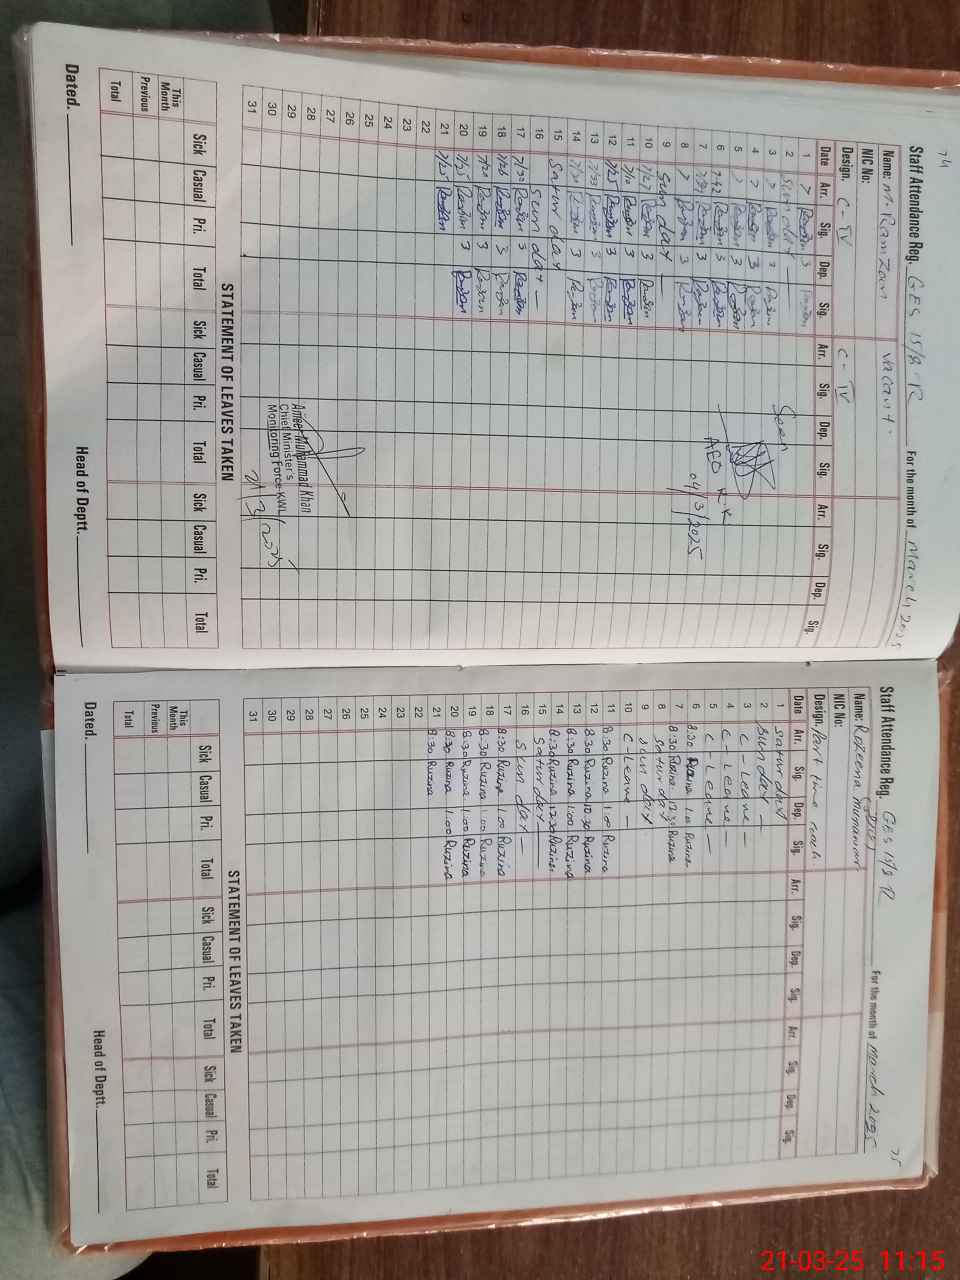 74
Staff Attendance Reg. GES 15/8-R For the month of March, 2025
Name: M. Ramzan Vacant.
NIC No:
Design. C-IV C-IV
Date Arr. Sig. Dep. Sig. Arr. Sig. Dep. Sig. Arr. Sig. Dep. Sig.
1 7 3
2 Sunday —
3 7 3
4 7 3
5 7 3
6 7:42 3
7 3
8 7 3
9 Sunday —
10 7/27 3
11 7/10 3
12 7/25 3
13 7/33 3
14 7/30 3
15 Saturday
16 Sunday —
17 7/30
18 7/26 3
19 7/20 3
20 7/25 3
21 7/25
22
23
24
25
26
27
28
29
30
31
Seen
AEO
04/3/2025
Ameer Muhammad Khan
Chief Minister's
Monitoring Force KWL
21/3/2025
STATEMENT OF LEAVES TAKEN
Sick Casual Pri. Total Sick Casual Pri. Total Sick Casual Pri. Total
This Month
Previous
Total
Dated. Head of Deptt.
75
Staff Attendance Reg. GES 15/8 R For the month of March 2025
Name: Rozeena Munawar
NIC No:
Design. Part time coach
Date Arr. Sig. Dep. Sig. Arr. Sig. Dep. Sig. Arr. Sig. Dep. Sig.
1 Saturday
2 Sunday —
3 C-Leave —
4 C-Leave —
5 C-Leave —
6 8:30 Ruzina 1:00 Ruzina
7 8:30 Ruzina 12:30 Ruzina
8 Saturday
9 Sunday
10 C-Leave —
11 8:30 Ruzina 1:00 Ruzina
12 8:30 Ruzina 10:30 Ruzina
13 8:30 Ruzina 1:00 Ruzina
14 8:30 Ruzina 12:30 Ruzina
15 Saturday —
16 Sunday —
17 8:30 Ruzina 1:00 Ruzina
18 8:30 Ruzina 1:00 Ruzina
19 8:30 Ruzina 1:00 Ruzina
20 8:30 Ruzina 1:00 Ruzina
21 8:30 Ruzina
22
23
24
25
26
27
28
29
30
31
STATEMENT OF LEAVES TAKEN
Sick Casual Pri. Total Sick Casual Pri. Total Sick Casual Pri. Total
This Month
Previous
Total
Dated. Head of Deptt.
21-03-25 11:15